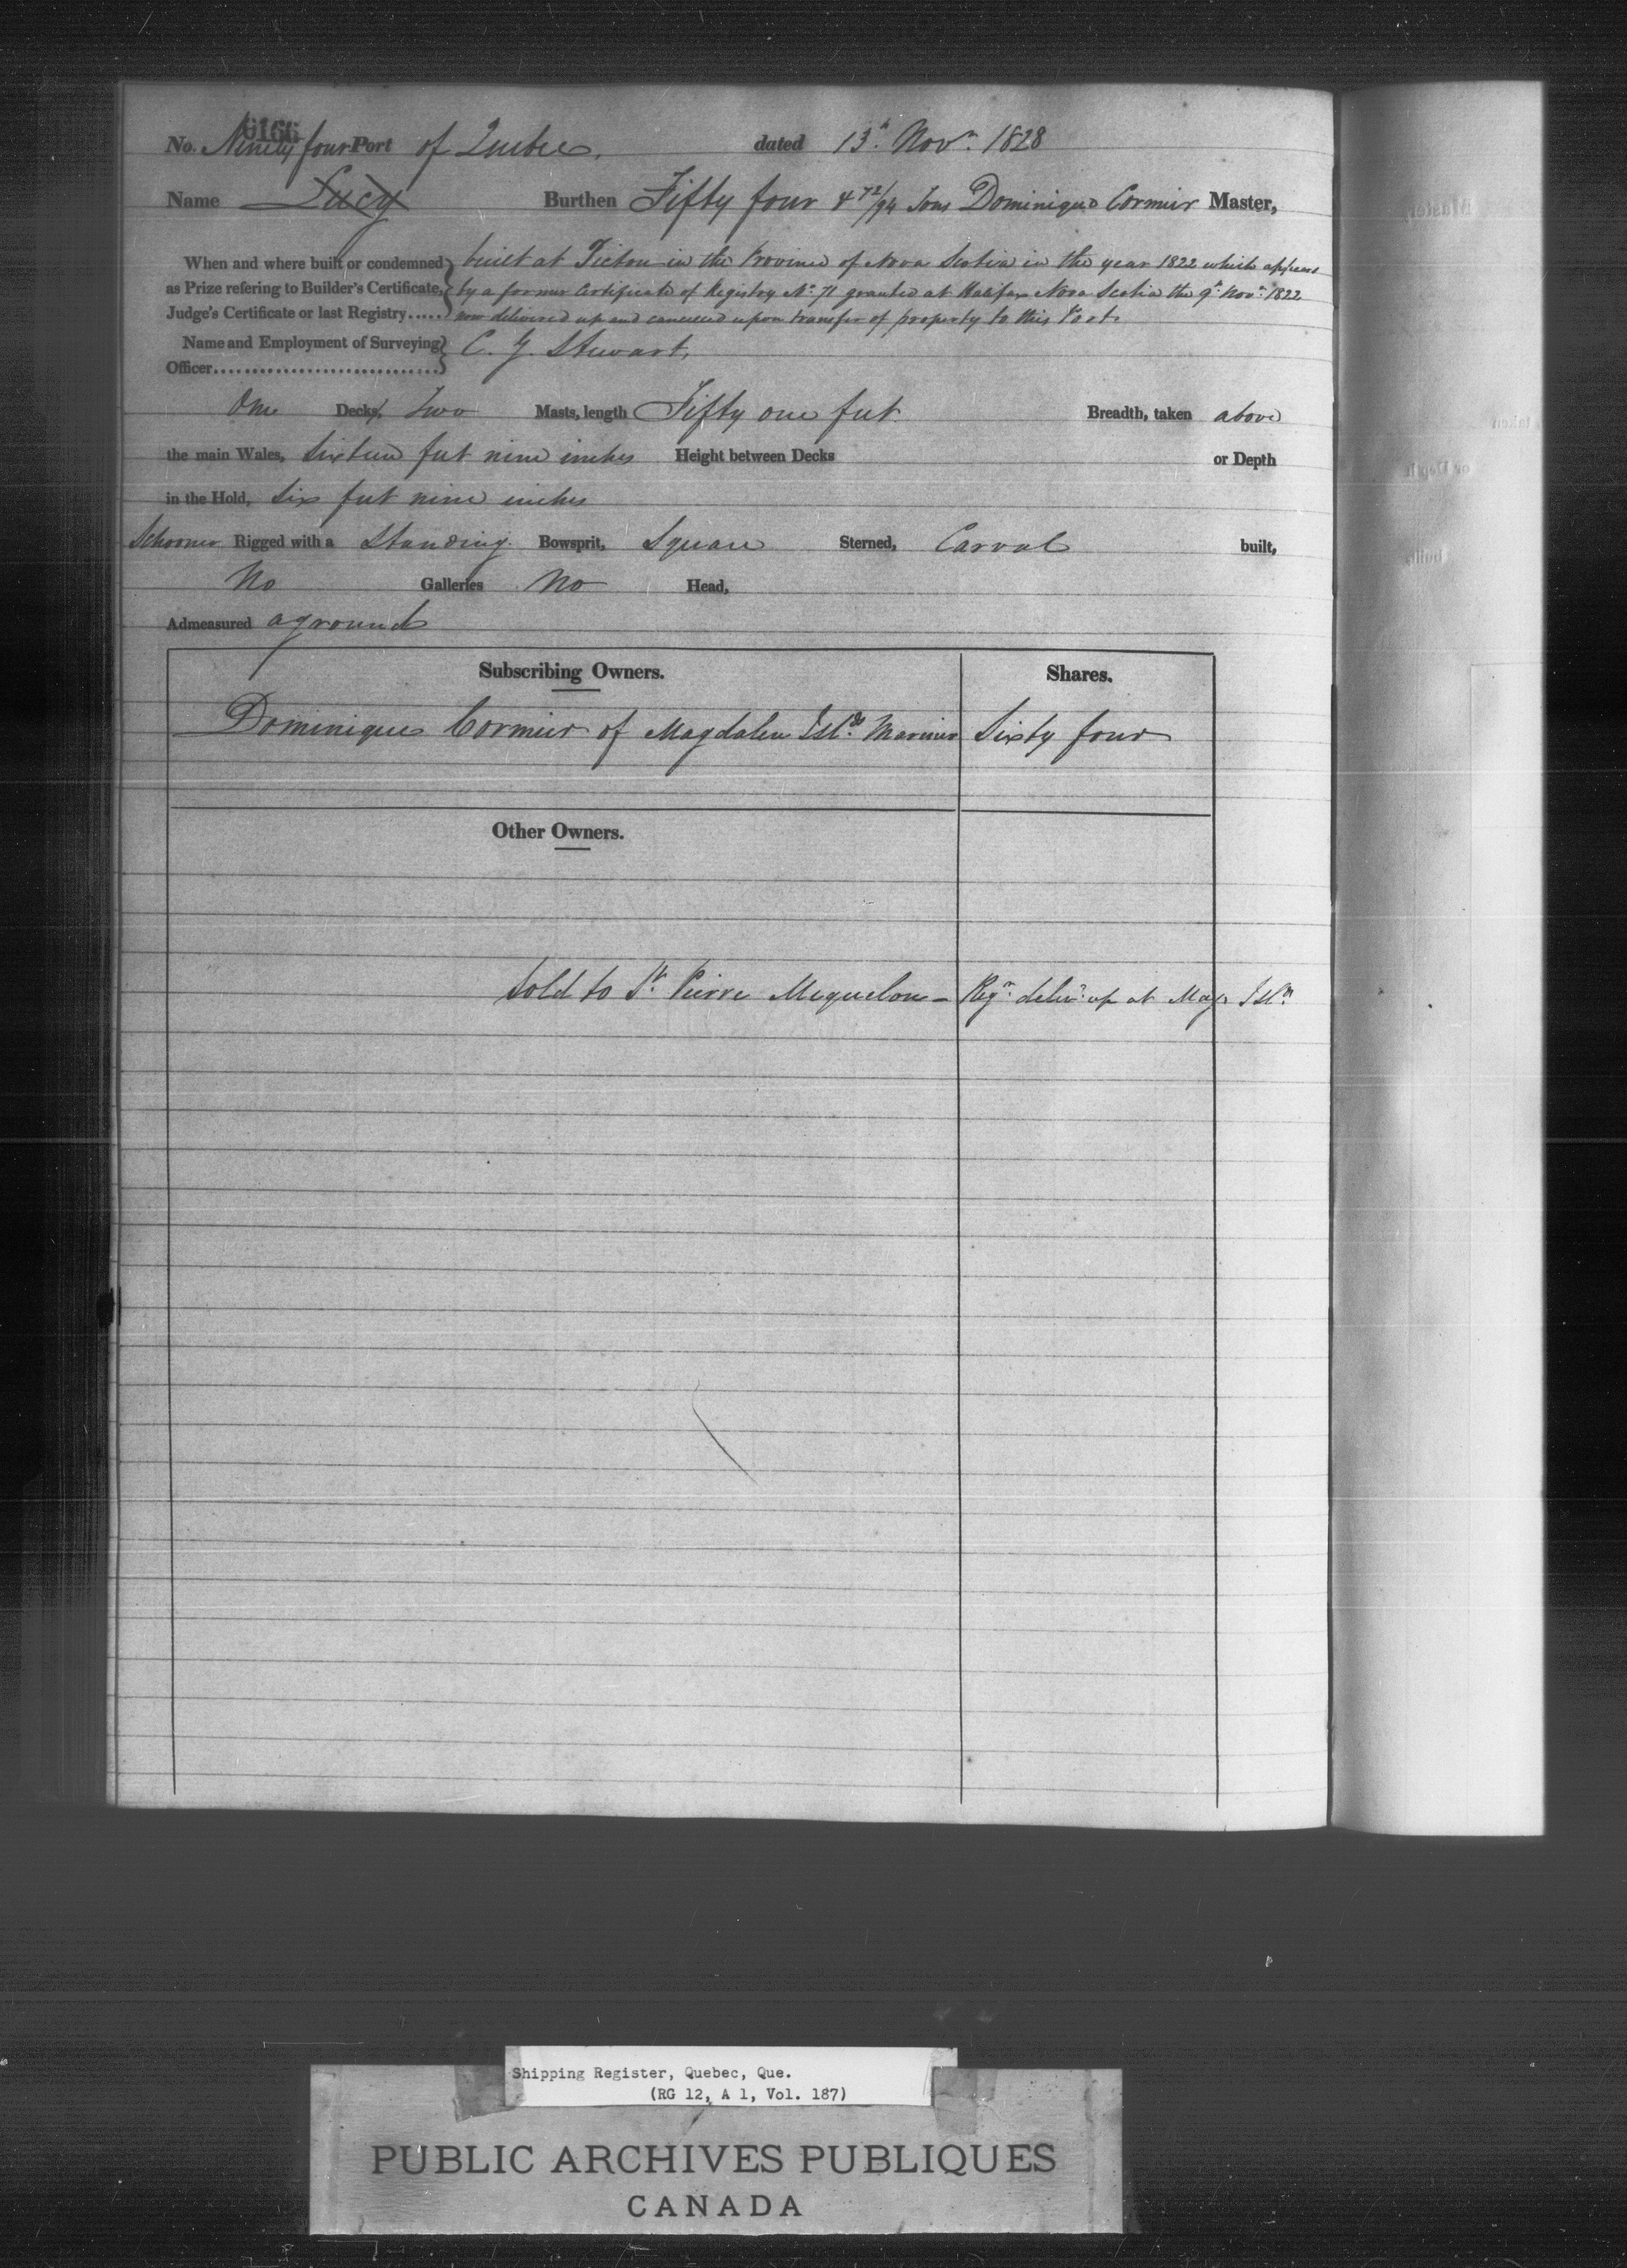 0166
No. Ninety four Port of Quebec, dated 13th Novr. 1828
Name Lucy Burthen Fifty four & 72/94 Tons Dominique Cormier Master,
When and where built or condemned as Prize refering to Builder's Certificate, Judge's Certificate or last Registry.....
built at Pictou in the Province of Nova Scotia in the year 1822 which appears
by a former Certificate of Registry No. 71 granted at Halifax Nova Scotia the 9th Novr. 1822
now delivered up and cancelled upon transfer of property to this Port.
Name and Employment of Surveying Officer............................. C. G. Stewart,
One Decks, Two Masts, length Fifty one feet Breadth, taken above
the main Wales, Sixteen feet nine inches Height between Decks or Depth
in the Hold, Six feet nine inches
Schooner Rigged with a Standing Bowsprit, Square Sterned, Carvel built,
No Galleries No Head,
Admeasured aground
Subscribing Owners. Shares.
Dominique Cormier of Magdalen Islds. Mariner Sixty four
Other Owners.
Sold to St. Pierre Miquelon - Regr. delivd. up at Magn Isln.
Shipping Register, Quebec, Que.
(RG 12, A 1, Vol. 187)
PUBLIC ARCHIVES PUBLIQUES
CANADA